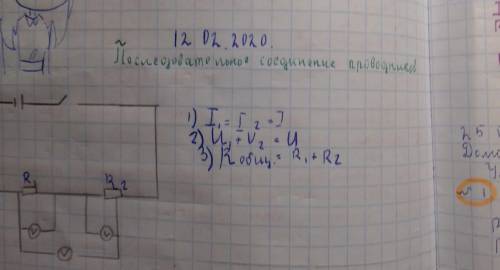 12.02.2020.
Последовательное соединение проводников
1) I₁ = I₂ = I
2) U₁ + U₂ = U
3) R общ = R₁ + R₂
R₁ R₂
V V
V
25